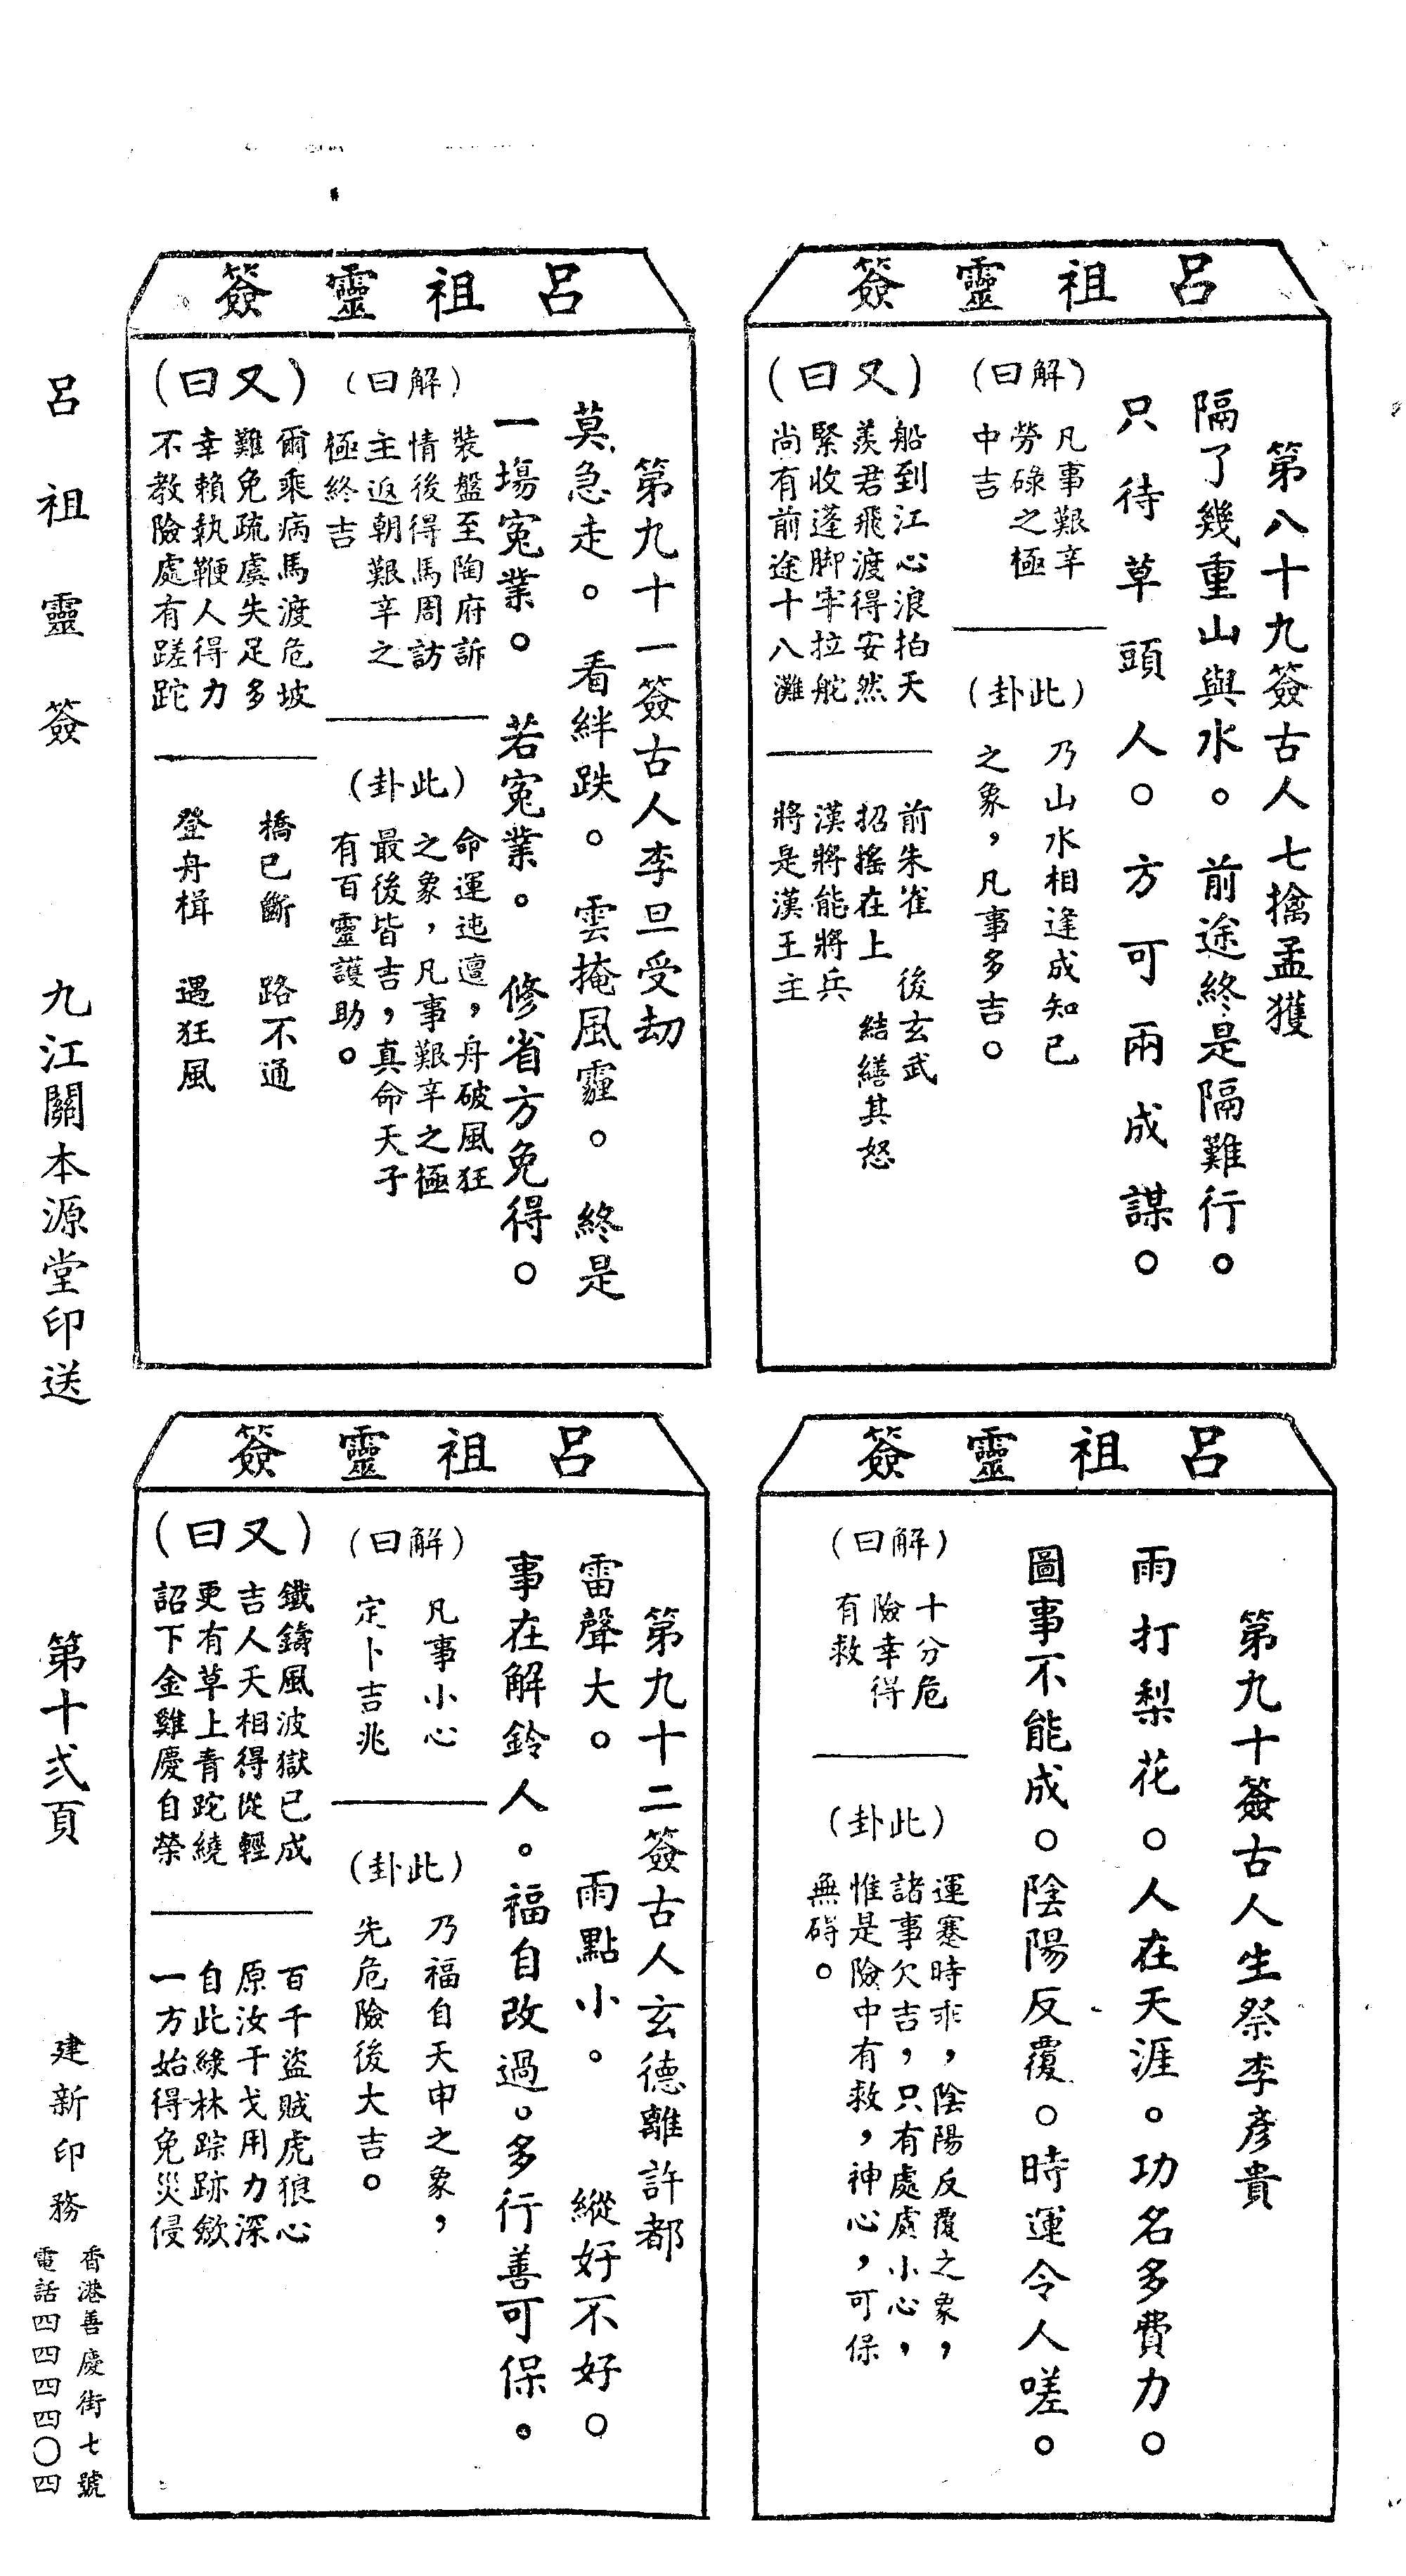 呂祖靈簽
第八十九簽古人七擒孟獲
隔了幾重山與水。前途終是隔難行。
只待草頭人。方可兩成謀。
(解曰)
凡事艱辛
勞碌之極
中吉
(此卦)
乃山水相逢成知己
之象,凡事多吉。
(又曰)
船到江心浪拍天
羨君飛渡得安然
緊收蓬脚牢拉舵
尚有前途十八灘
前朱雀 後玄武
招搖在上 結繕其怒
漢將能將兵
將是漢王主
呂祖靈簽
第九十簽古人生祭李彥貴
雨打梨花。人在天涯。功名多費力。
圖事不能成。陰陽反覆。時運令人嗟。
(解曰)
十分危
險幸得
有救
(此卦)
運蹇時乖,陰陽反覆之象,
諸事欠吉,只有處處小心,
惟是險中有救,神心,可保
無碍。
呂祖靈簽
第九十一簽古人李旦受劫
莫急走。看絆跌。雲掩風霾。終是
一塲寃業。若寃業。修省方免得。
(解曰)
裝盤至陶府訴
情後得馬周訪
主返朝艱辛之
極終吉
(此卦)
命運迍邅,舟破風狂
之象,凡事艱辛之極
最後皆吉,真命天子
有百靈護助。
(又曰)
爾乘病馬渡危坡
難免疏虞失足多
幸賴執鞭人得力
不教險處有蹉跎
橋已斷 路不通
登舟楫 遇狂風
呂祖靈簽
第九十二簽古人玄德離許都
雷聲大。雨點小。縱好不好。
事在解鈴人。福自改過。多行善可保。
(解曰)
凡事小心
定卜吉兆
(此卦)
乃福自天申之象,
先危險後大吉。
(又曰)
鐵鑄風波獄已成
吉人天相得從輕
更有草上青蛇繞
詔下金雞慶自榮
百千盜賊虎狼心
原汝干戈用力深
自此綠林踪跡歛
一方始得免災侵
呂祖靈簽
九江關本源堂印送
第十弍頁
建新印務
香港善慶街七號
電話四四四四〇四